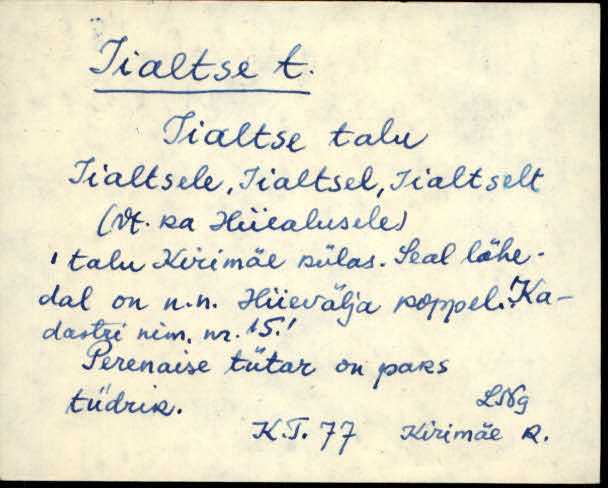 Iialtse t.
Iialtse talu
Iialtsele, Iialtsel, Iialtselt
(Vt. ka Hiiealusele)
' talu Kirimäe külas. Seal lähe-
dal on n.n. Hiievälja koppel.' 'Ka-
dastri nim. nr. 'S.'
Perenaise tütar on paks
tüdrik.
LNg
K.T. 77 Kirimäe k.